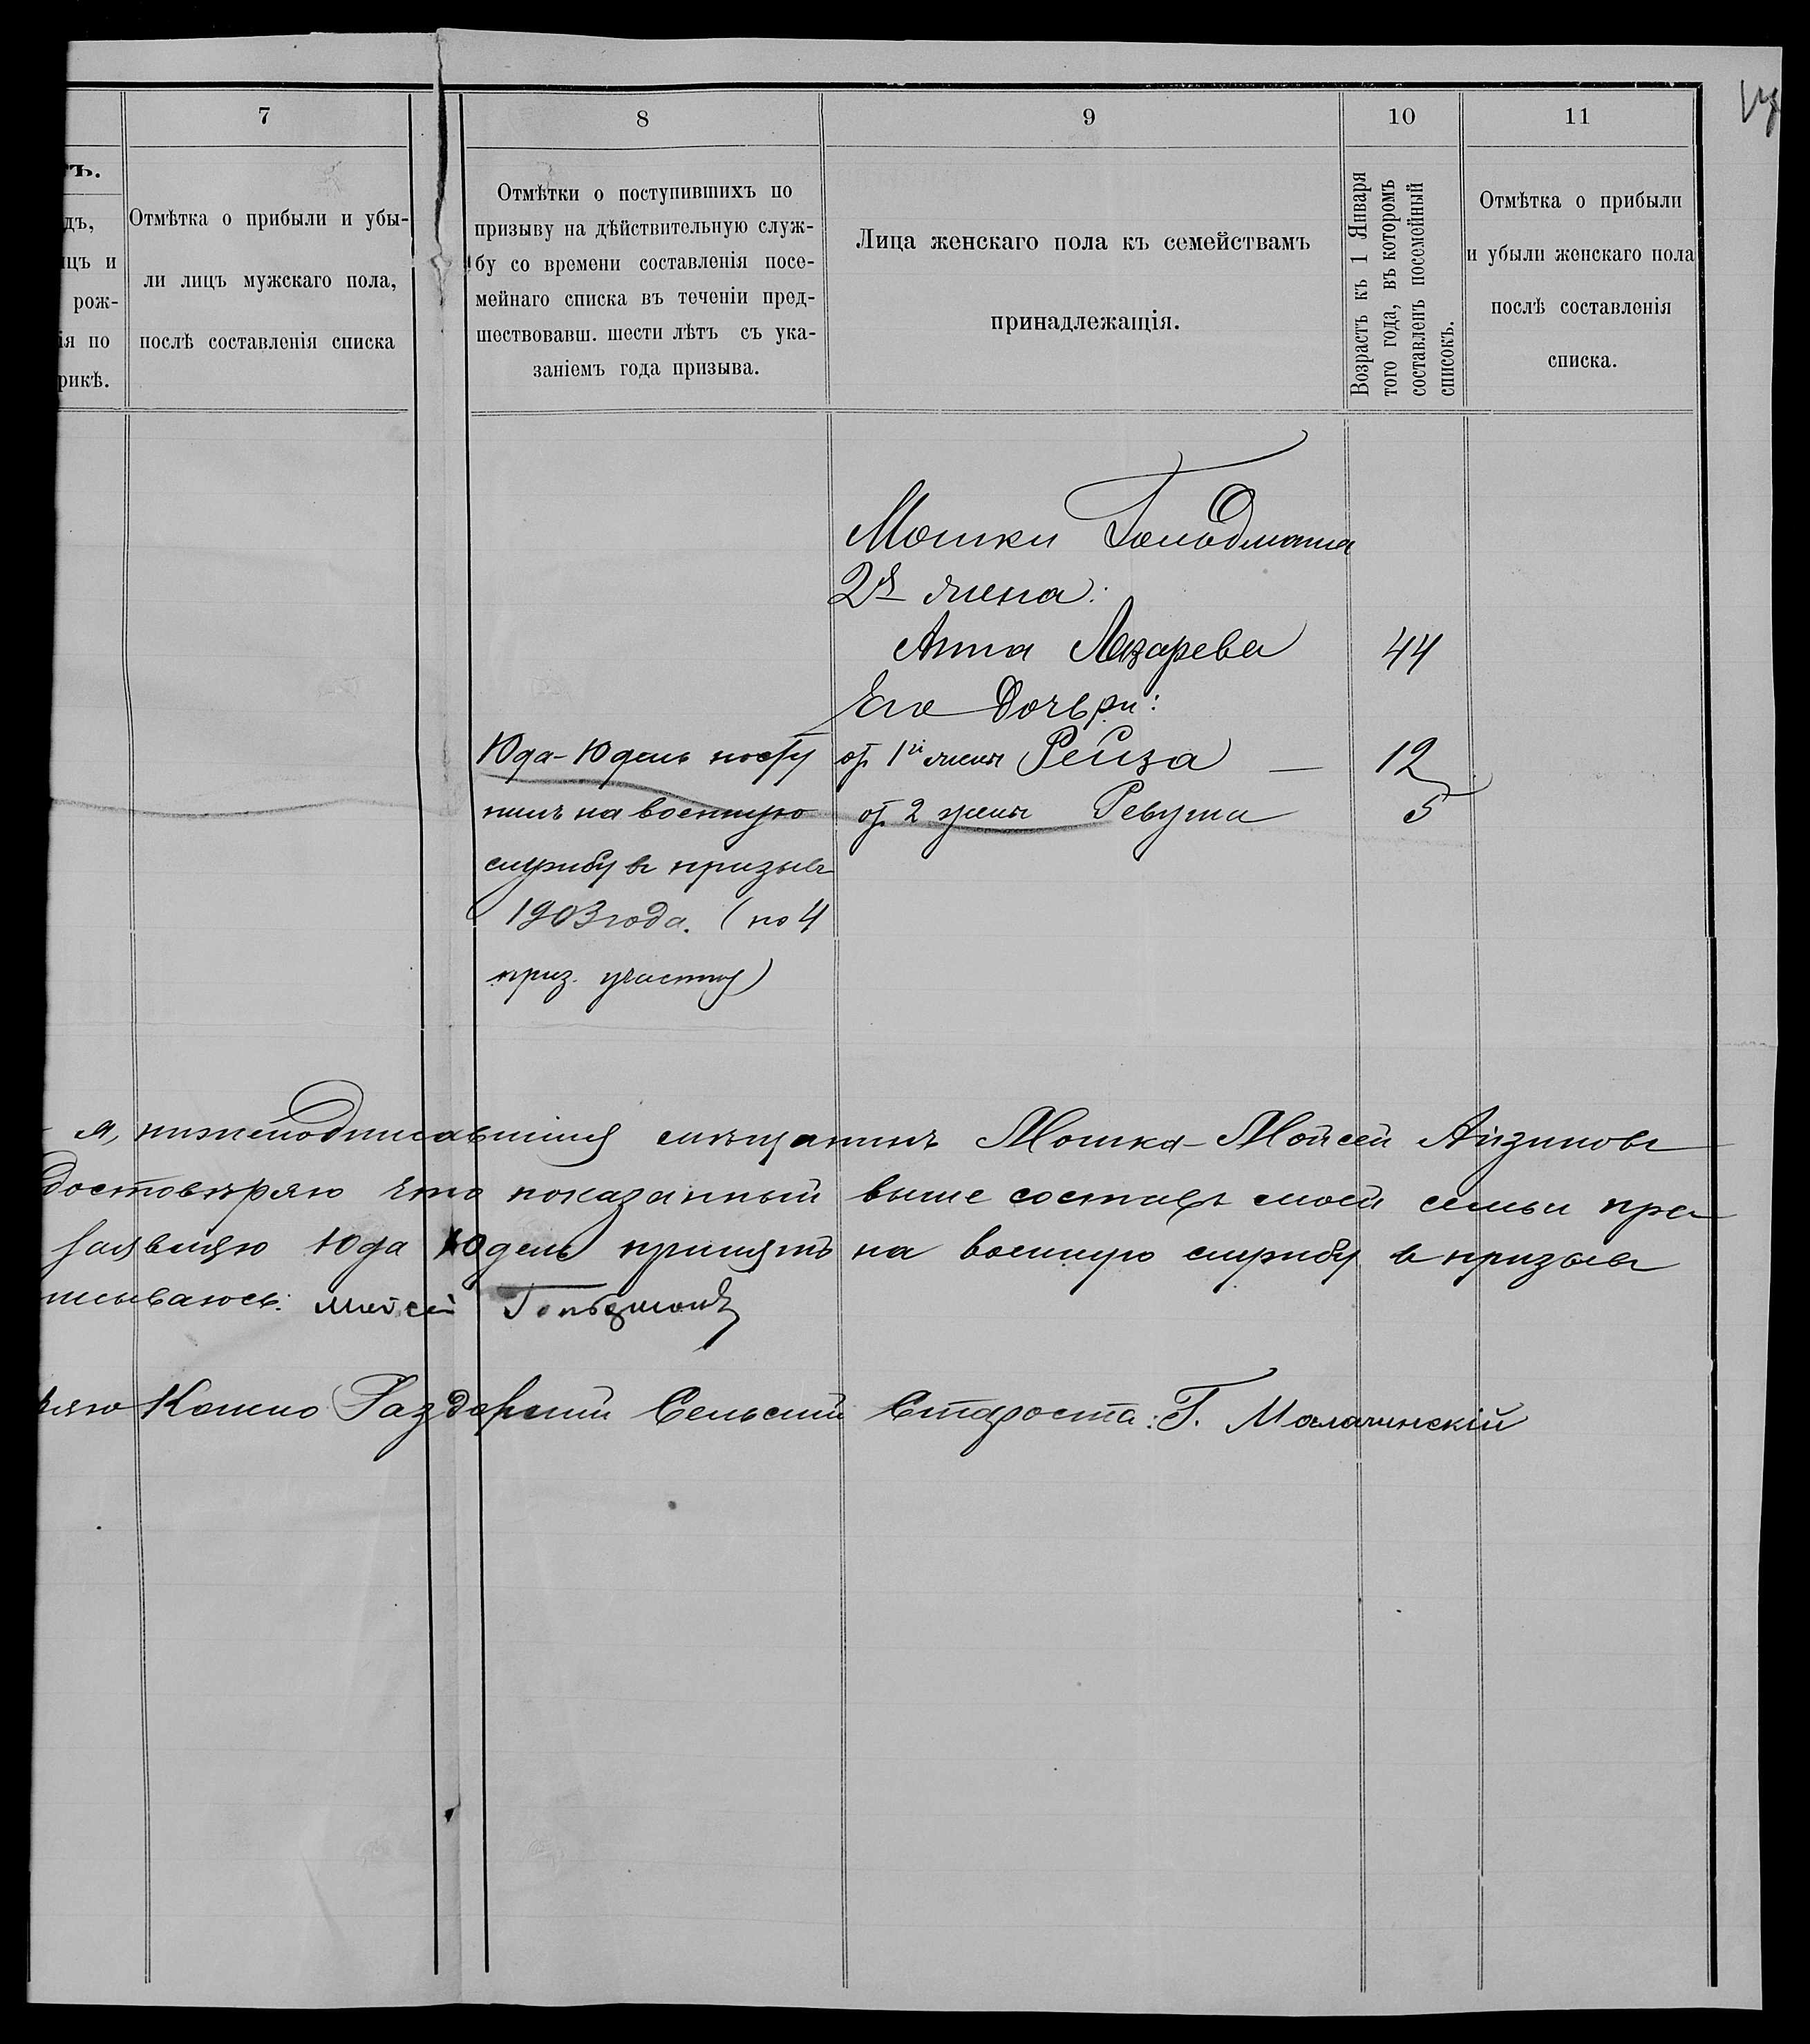 7
8
9
10
11
тъ.
дъ,
яцъ и
рож-
ія по
рикѣ.
Отмѣтка о прибыли и убы-
ли лицъ мужскаго пола,
послѣ составленія списка
Отмѣтки о поступившихъ по
призыву на дѣйствительную служ-
бу со времени составленія посе-
мейнаго списка въ теченіи пред-
шествовавш. шести лѣтъ съ ука-
заніемъ года призыва.
Лица женскаго пола къ семействамъ
принадлежащія.
Возрастъ къ 1 Января
того года, въ которомъ
составленъ посемейный
списокъ.
Отмѣтка о прибыли
и убыли женскаго пола
послѣ составленія
списка.
Мошки Гольдмана
2я жена:
Анна Лазарева 44
Его дочьри:
от 1й жены Рейза — 12
от 2 жены Ревума 5
Юда-Юдель посту
пилъ на военную
службу в призывъ
1903 года. (по 4
приз. участку)
я, нижеподписавшийся мѣщанинъ Мошка-Мойсей Айзиковъ
достовѣряю что показанный выше составъ моей семьи пра
заявляю Юда Юдель принятъ на военную службу в призывъ
писываюсь. Мойсей Гольдманъ
ряю Раздорский Сельский Староста: Г. Малачинскій